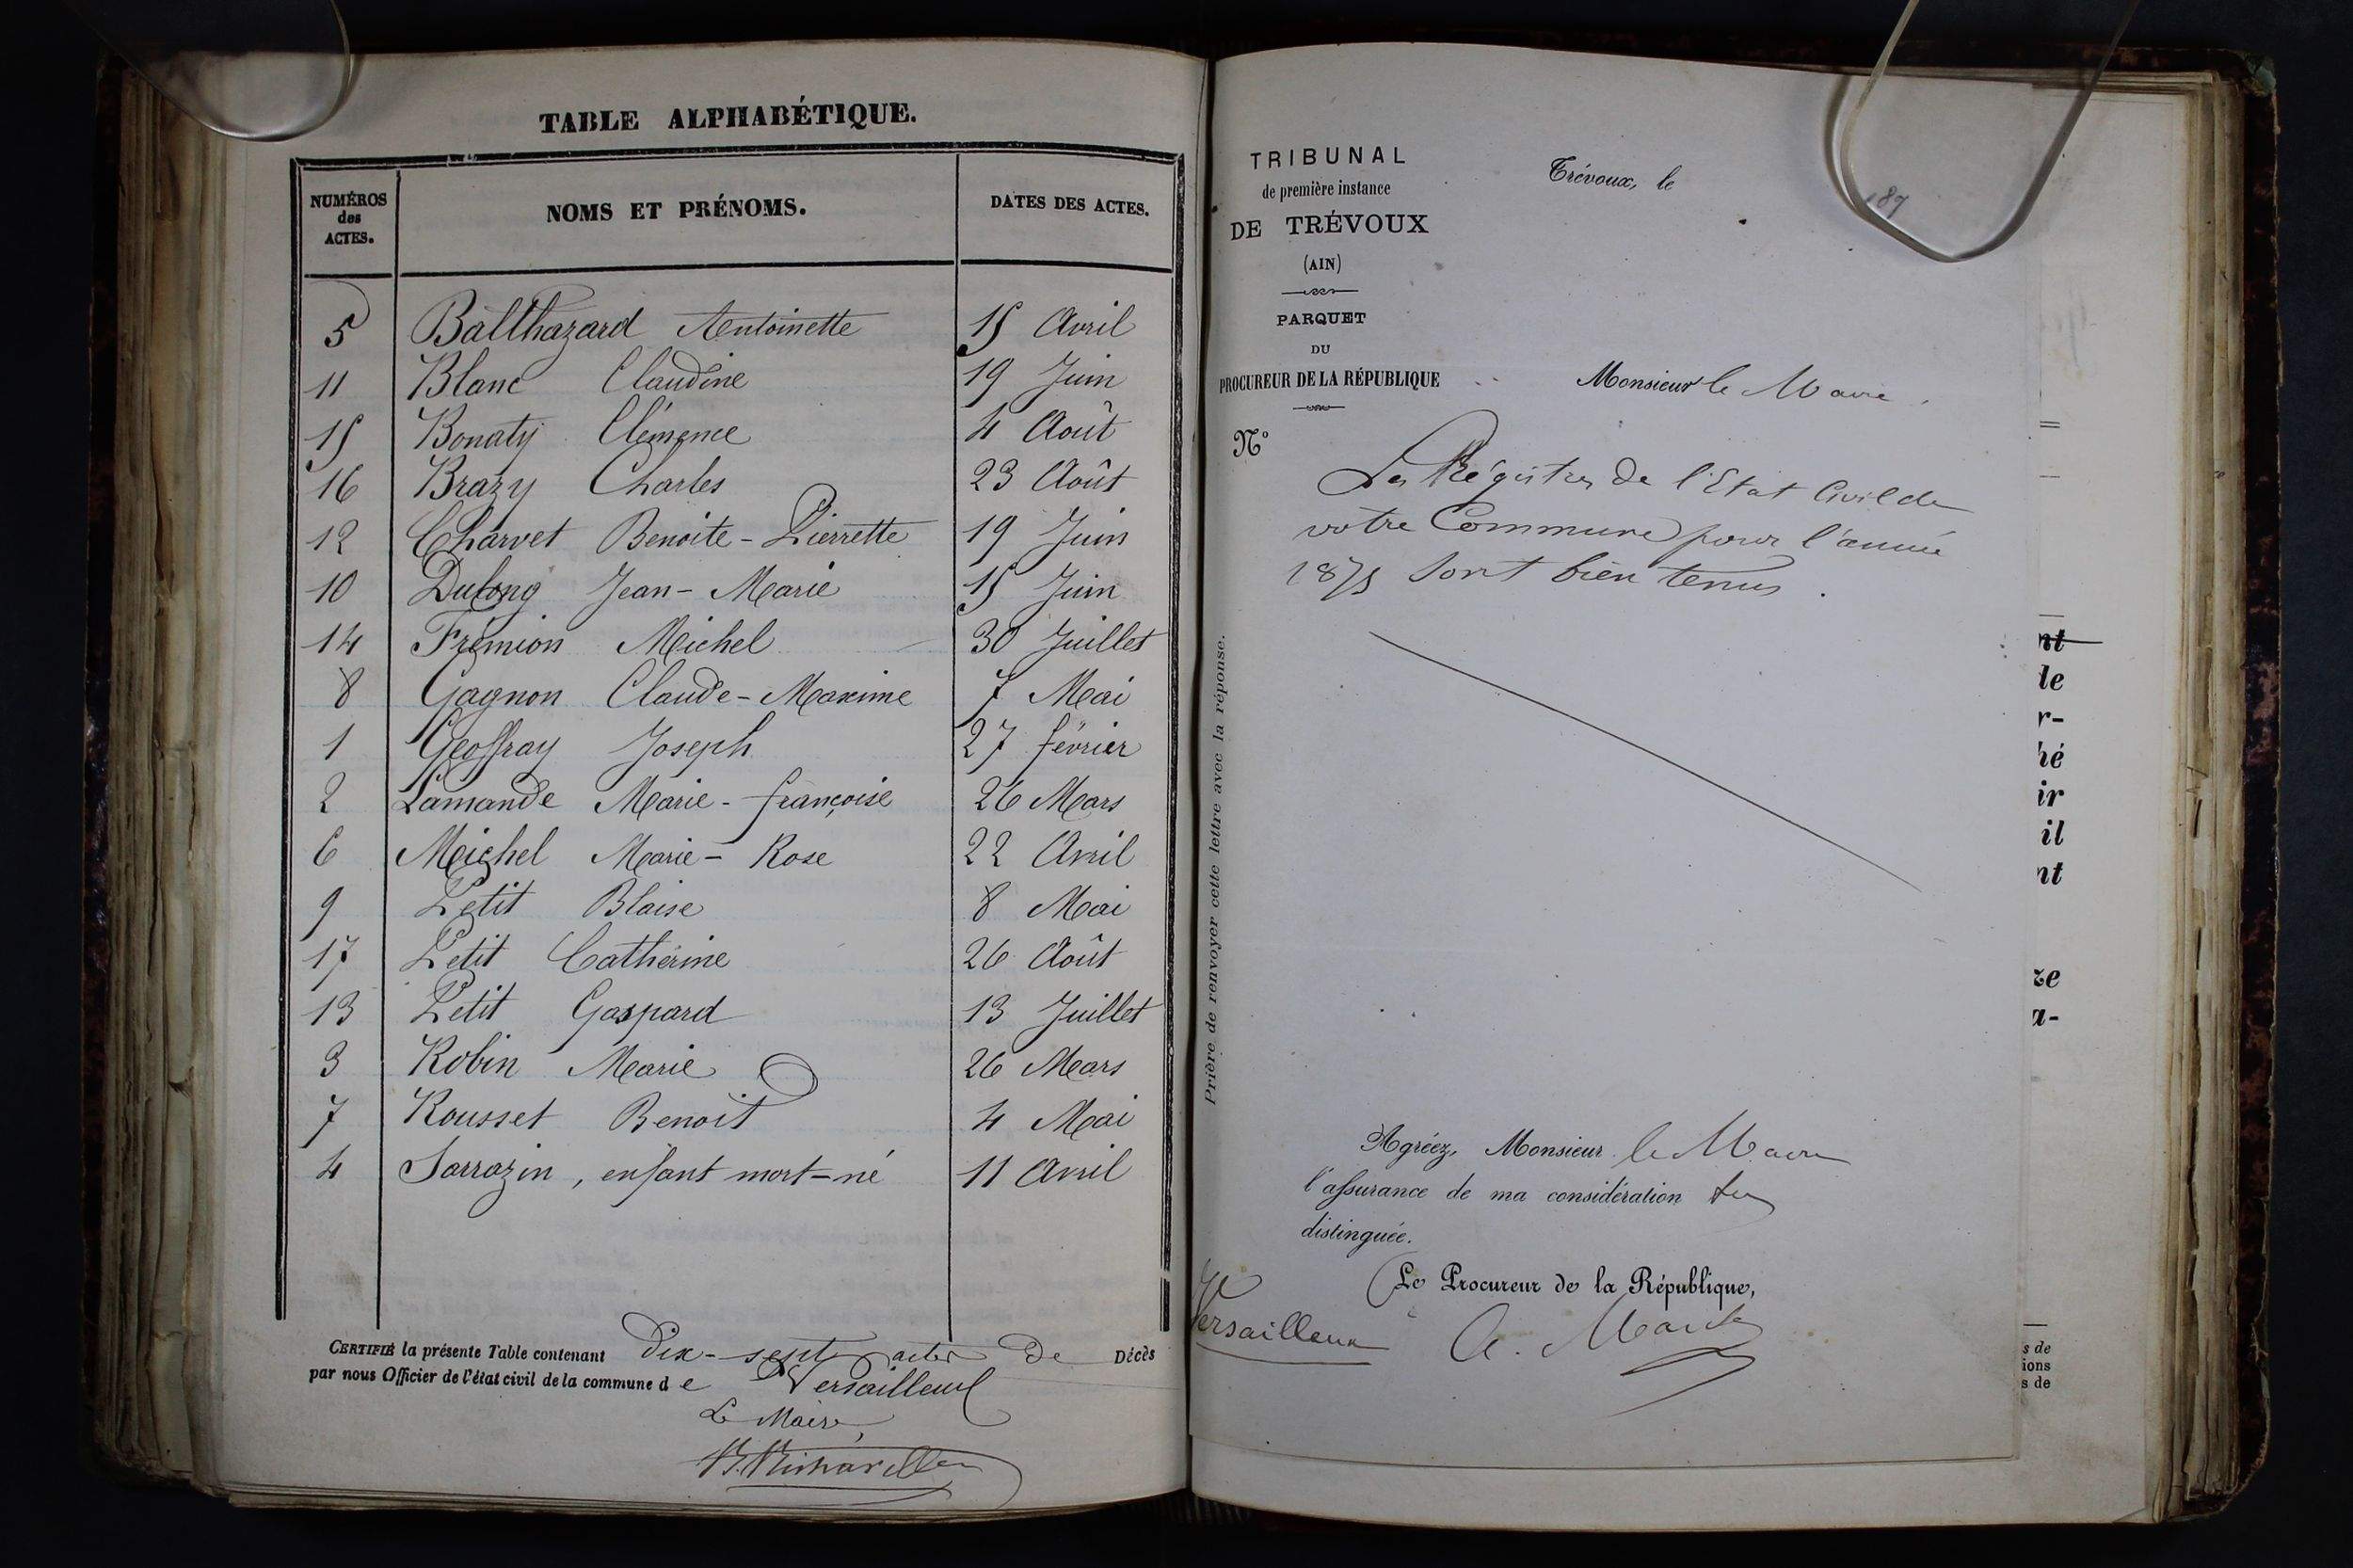 TABLE ALPHABÉTIQUE.
NUMÉROS des ACTES. NOMS ET PRÉNOMS. DATES DES ACTES.
5 Balthazard Antoinette 15 Avril
11 Blanc Claudine 19 Juin
15 Bonaty Clémence 4 Août
16 Brazy Charles 23 Août
12 Charvet Benoite-Pierrette 19 Juin
10 Dulong Jean-Marie 15 Juin
14 Frémion Michel 30 Juillet
8 Gagnon Claude-Maxime 7 Mai
1 Geoffray Joseph 27 février
2 Lamande Marie-françoise 26 Mars
6 Michel Marie-Rose 22 Avril
9 Petit Blaise 8 Mai
17 Petit Cathérine 26 Août
13 Petit Gaspard 13 Juillet
3 Robin Marie 26 Mars
7 Rousset Benoit 4 Mai
4 Sarrazin, enfant mort-né 11 Avril
CERTIFIÉ la présente Table contenant dix-sept actes de Décès
par nous Officier de l'état civil de la commune de Versailleux
Le Maire,
TRIBUNAL
de première instance
DE TRÉVOUX
(AIN)
PARQUET
DU
PROCUREUR DE LA RÉPUBLIQUE
N°
Prière de renvoyer cette lettre avec la réponse.
Trévoux, le
187
Monsieur le Maire,
Les Régistres de l'Etat Civil de
votre Commune pour l'année
1875 sont bien tenus.
Agréez, Monsieur le Maire
l'assurance de ma considération très
distinguée.
Le Procureur de la République,
Versailleux
nt
le
r-
hé
ir
il
nt
ze
a-
s de
ions
s de